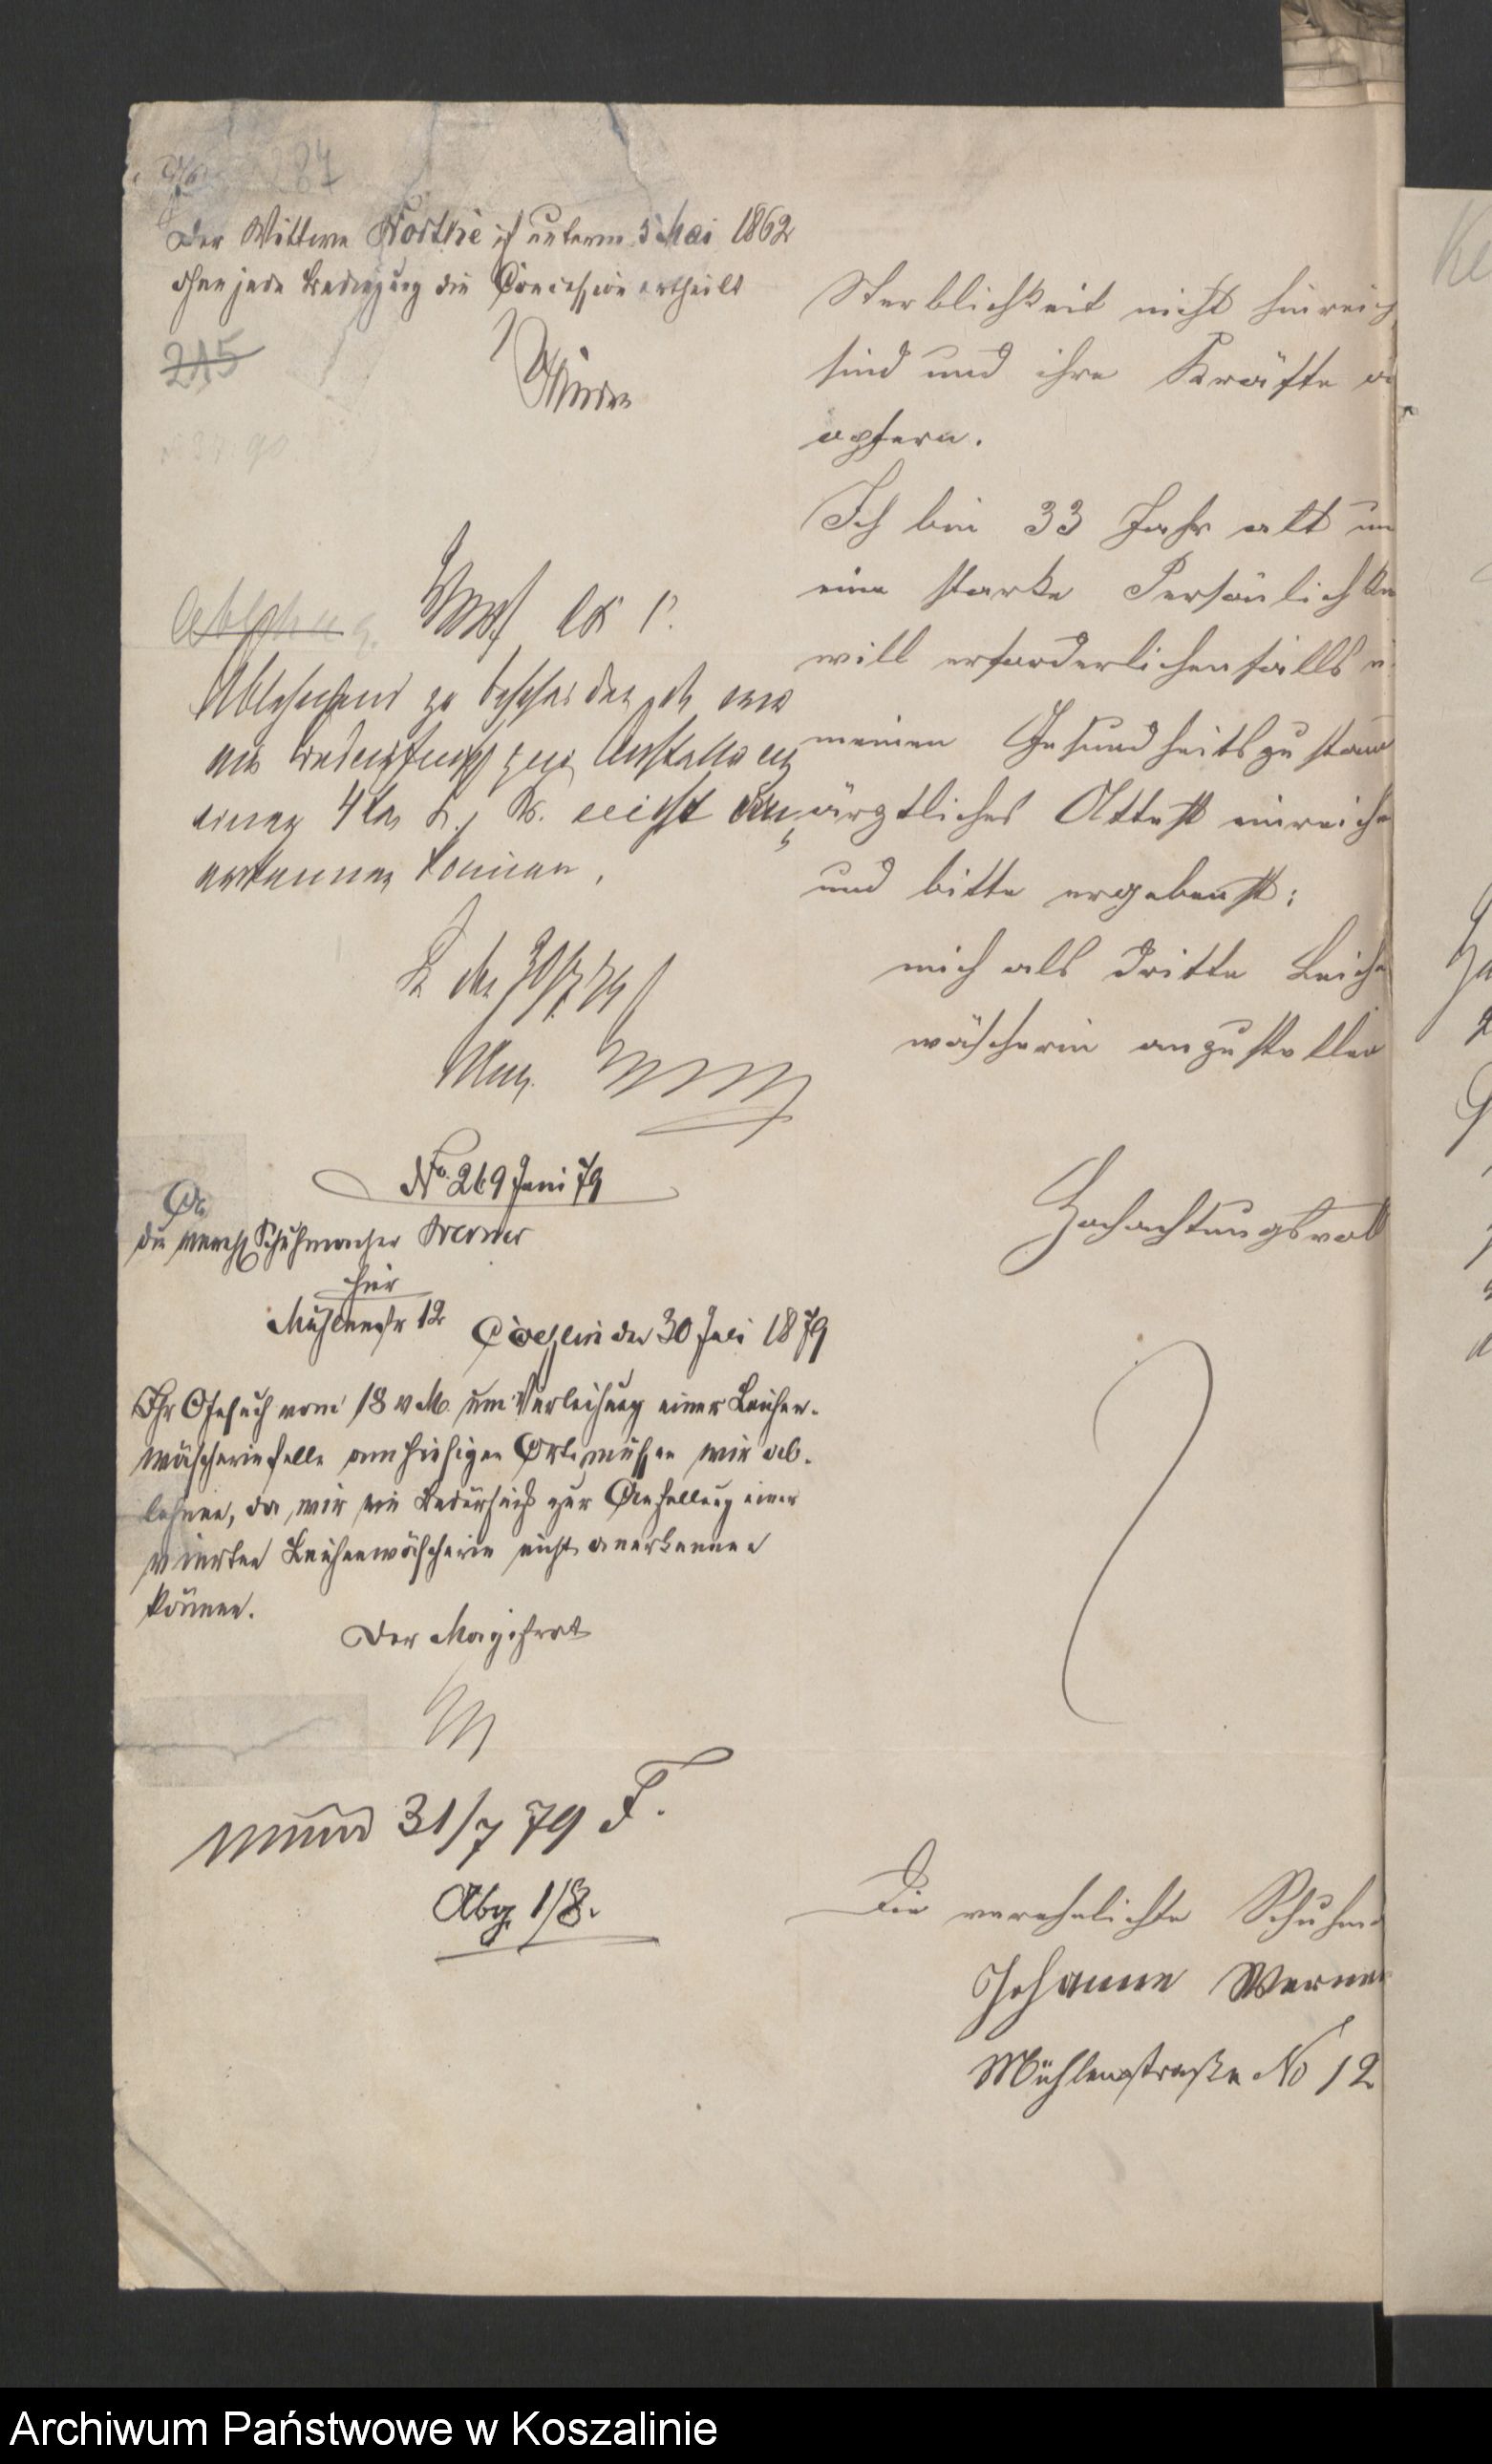 287
Der Wittwe Nostke ist unterm 5 Mai 1862
ohne jede Bedingung die Concession ertheilt
215
Ablehnend zu bescheiden, da
ein Bedürfniß zur Anstellung
einer 4ten L. W. nicht
anerkennen können.
30/7 79
Mag.
No. 269 Juni 79
An
die verehl Schuhmacher Werner
hier
Mühlenstr 12
Cöslin den 30 Juli 1879
Ihr Gesuch vom 18 v M. um Verleihung einer Leichen-
wäscherinstelle am hiesigen Orte müssen wir ab-
lehnen, da wir ein Bedürfniß zur Anstellung einer
vierten Leichenwäscherin nicht anerkennen
können.
Der Magistrat
mund 31/7 79 F.
Abg. 1/8.
Sterblichkeit nicht hinreich
sind und ihre Kräfte
opfern.
Ich bin 33 Jahr alt un
eine starke Persönlichke
will erforderlichenfalls
meinen Gesundheitszustan
ärztliches Attest einreiche
und bitte ergebenst:
mich als dritte Leiche
wäscherin anzustellen
Hochachtungsvoll
Die verehelichte Schuhm
Johanne Werner
Mühlenstraße No 12
Archiwum Państwowe w Koszalinie